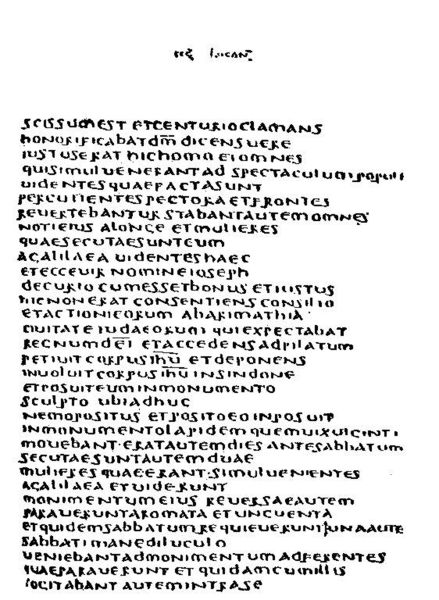 sec lucan
scissum est et centurio clamans
honorificabat dm̅ dicens uere
iustus erat hic homo et omnes
qui simul uenerant ad spectaculum populi
uidentes quae facta sunt
percutientes pectora et frontes
reuertebantur stabant autem omnes
noti eius a longe et mulieres
quae secutae sunt eum
a galilaea uidentes haec
et ecce uir nomine ioseph
decurio cum esset bonus et iustus
hic non erat consentiens consilio
et actioni eorum ab arimathia
ciuitate iudaeorum qui expectabat
regnum dei̅ et accedens ad pilatum
petiuit corpus ihu̅ et deponens
inuoluit corpus ihu̅ in sindone
et posuit eum in monumento
sculpto ubi adhuc
nemo positus et posito eo inposuit
in monumento lapidem quem uix uiginti
mouebant · erat autem dies ante sabbatum
secutae sunt autem duae
mulieres quae erant · simul uenientes
a galilaea et uiderunt
monimentum eius reuersae autem
parauerunt aromata et unguenta
et quidem sabbatum requieuerunt una aute
sabbati mane diluculo
ueniebant ad monimentum adferentes
quae parauerunt et quidam cum illis
cogitabant autem intra se